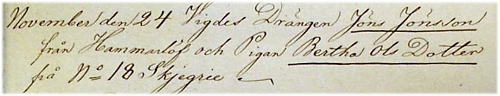 November den 24 Vigdes Drängen Jöns Jönsson
från Hammarlöf och Pigan Bertha Ols Dotter
på No 18 Skjegrie